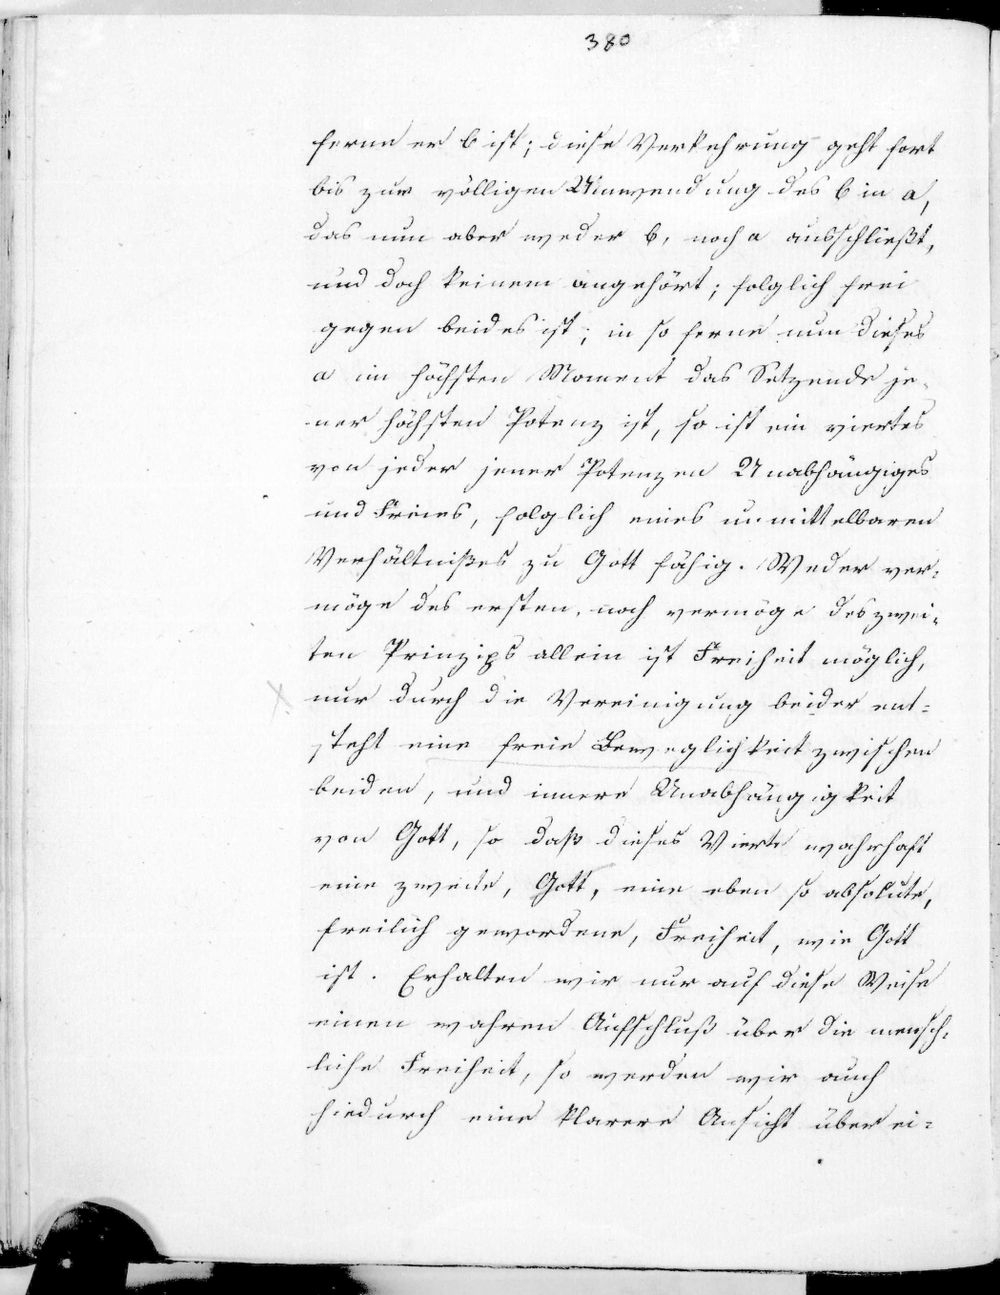 380
ferne er b ist; diese Verkehrung geht fort
bis zur völligen Umwendung des b in a,
das nun aber weder b, noch a ausschließt,
und doch keinem angehört; folglich frei
gegen beides ist; in so ferne nun dieses
a im höchsten Moment das Setzende je-
ner höchsten Potenz ist, so ist ein viertes
von jeder jener Potenzen Unabhängiges
und Freies, folglich eines unmittelbaren
Verhältnißes zu Gott fähig. Weder ver-
möge des ersten, noch vermöge des zwei-
ten Prinzips allein ist Freiheit möglich,
nur durch die Vereinigung beider ent=
steht eine freie Beweglichkeit zwischen
beiden, und innere Unabhängigkeit
von Gott, so daß dieses Vierte wahrhaft
eine zweite, Gott, eine eben so absolute,
freilich gewordene, Freiheit, wie Gott
ist. Erhalten wir nur auf diese Weise
einen wahren Aufschluß über die mensch-
liche Freiheit, so werden wir auch
hiedurch eine klarere Ansicht über ei=